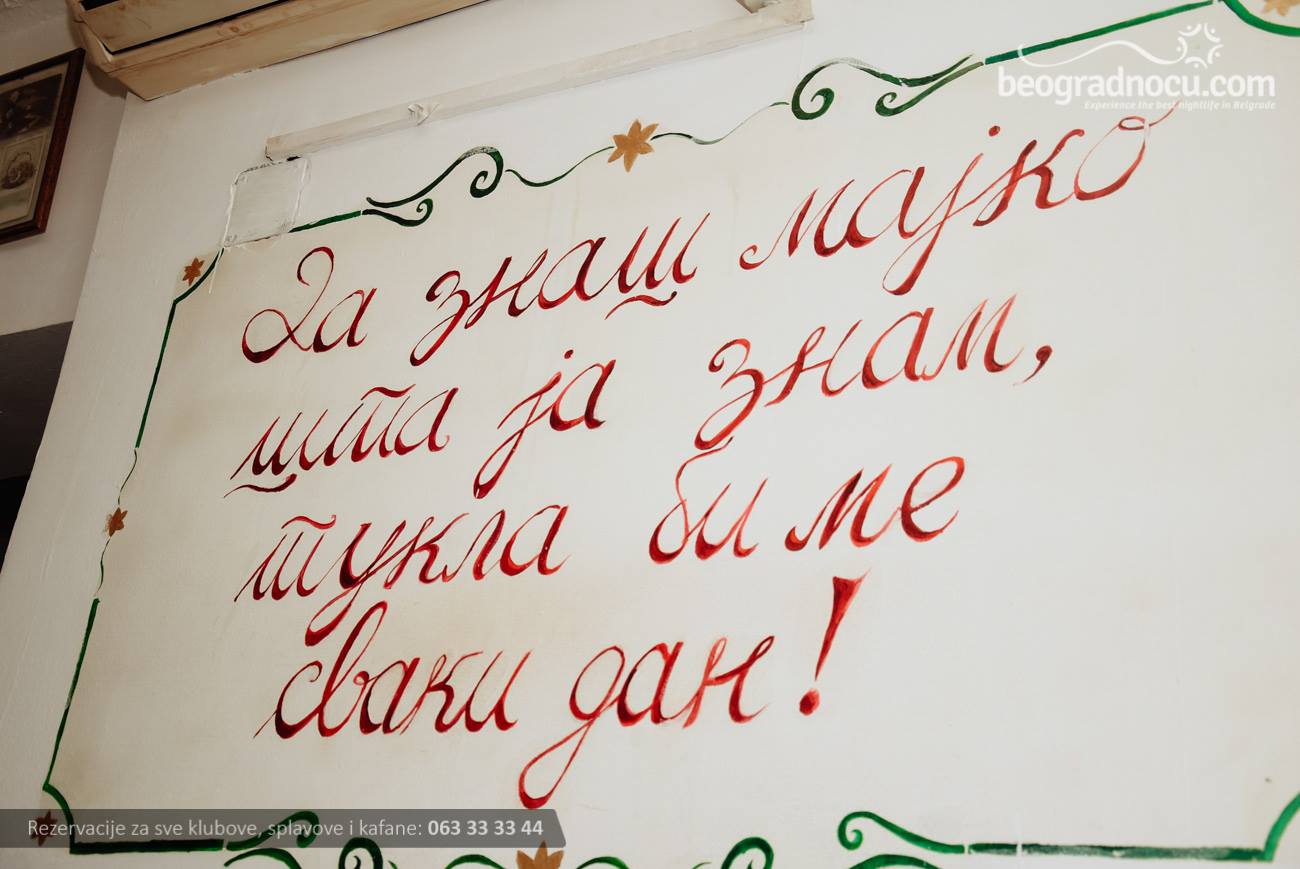 beogradnocu.com
Experience the best nightlife in Belgrade
Да знаш мајко
шта ја знам,
тукла би ме
сваки дан!
Rezervacije za sve klubove, splavove i kafane: 063 33 33 44